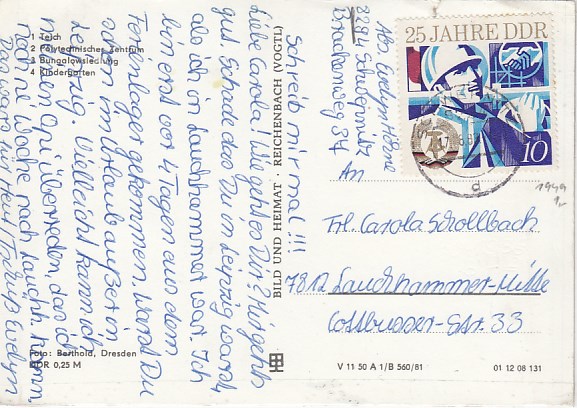 1 Teich
2 Polytechnisches Zentrum
3 Bungalowsiedlung
4 Kindergarten
Schreib mir mal!!!
Liebe Carola! Wie geht es Dir? Mir geht's
gut. Schade das Du in Leipzig warst,
als ich in Lauchhammer war. Ich
bin erst vor 4 Tagen aus dem
Ferienlager gekommen. Warst Du
schon im Urlaub außer in
Leipzig. Vielleicht kann ich
meinen Opi überreden, das ich
noch ne Woche nach Lauchh. komm
Das war's für Heut! Tschüß Evelyn
Foto: Berthold, Dresden
DDR 0,25 M
BILD UND HEIMAT · REICHENBACH (VOGTL)
V 11 50 A 1/B 560/81
01 12 08 131
Abs. Evelyn
Brückenweg 34
25 JAHRE DDR
10
1949
An
Frl. Carola Scrollbach
7812 Lauchhammer-Mitte
Cottbusser-Str. 33